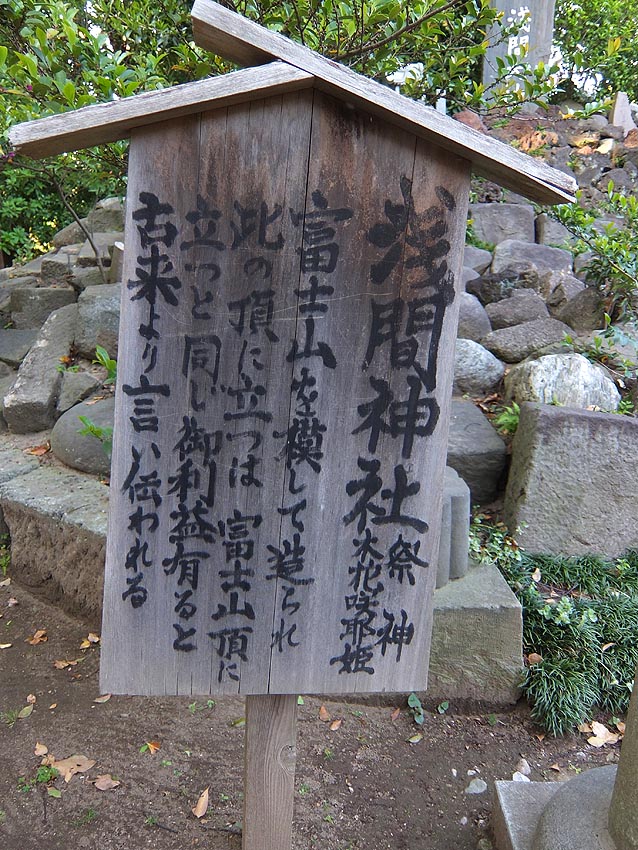 浅間神社
祭神
木花咲耶姫
富士山を模して造られ
此の頂に立つは 富士山頂に
立つと同じ御利益有ると
古来より言い伝われる
浅間